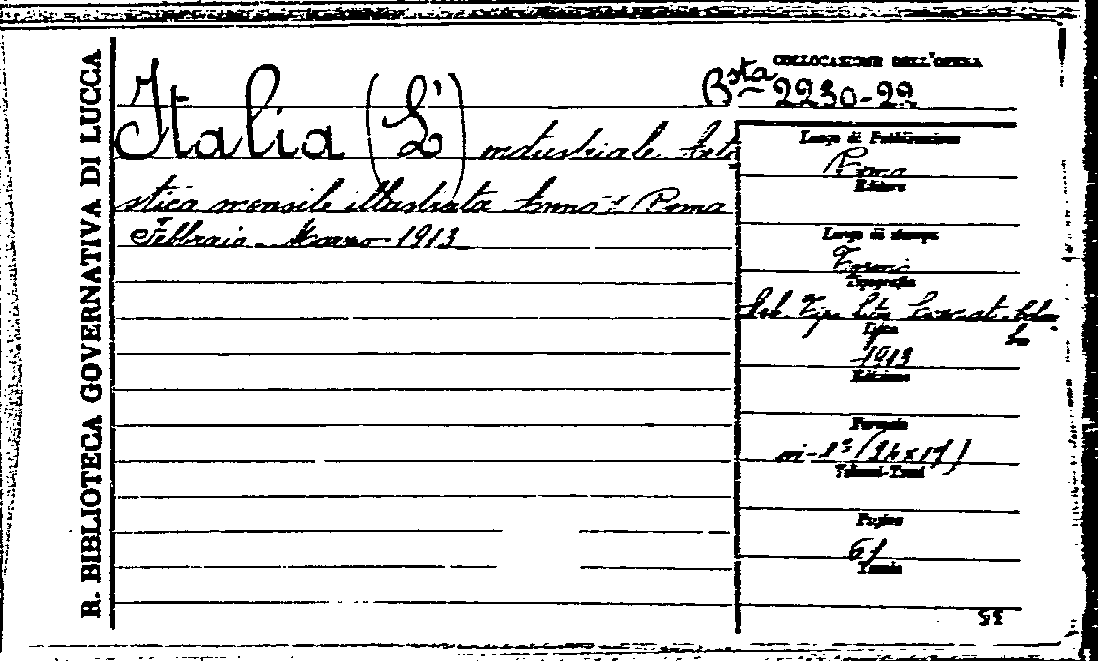 R. BIBLIOTECA GOVERNATIVA DI LUCCA
COLLOCAZIONE DELL'OPERA
Bsta 2230-22
Italia (L') industriale Arti
stica mensile illustrata Anno I Roma
Febbraio-Marzo 1913
Luogo di Pubblicazione
Roma
Editore
Luogo di stampa
Terni
Tipografia
Tipo Lito
Data
1913
Edizione
Formato
in-8° (24x17)
Volumi-Tomi
Pagine
61
Tavole